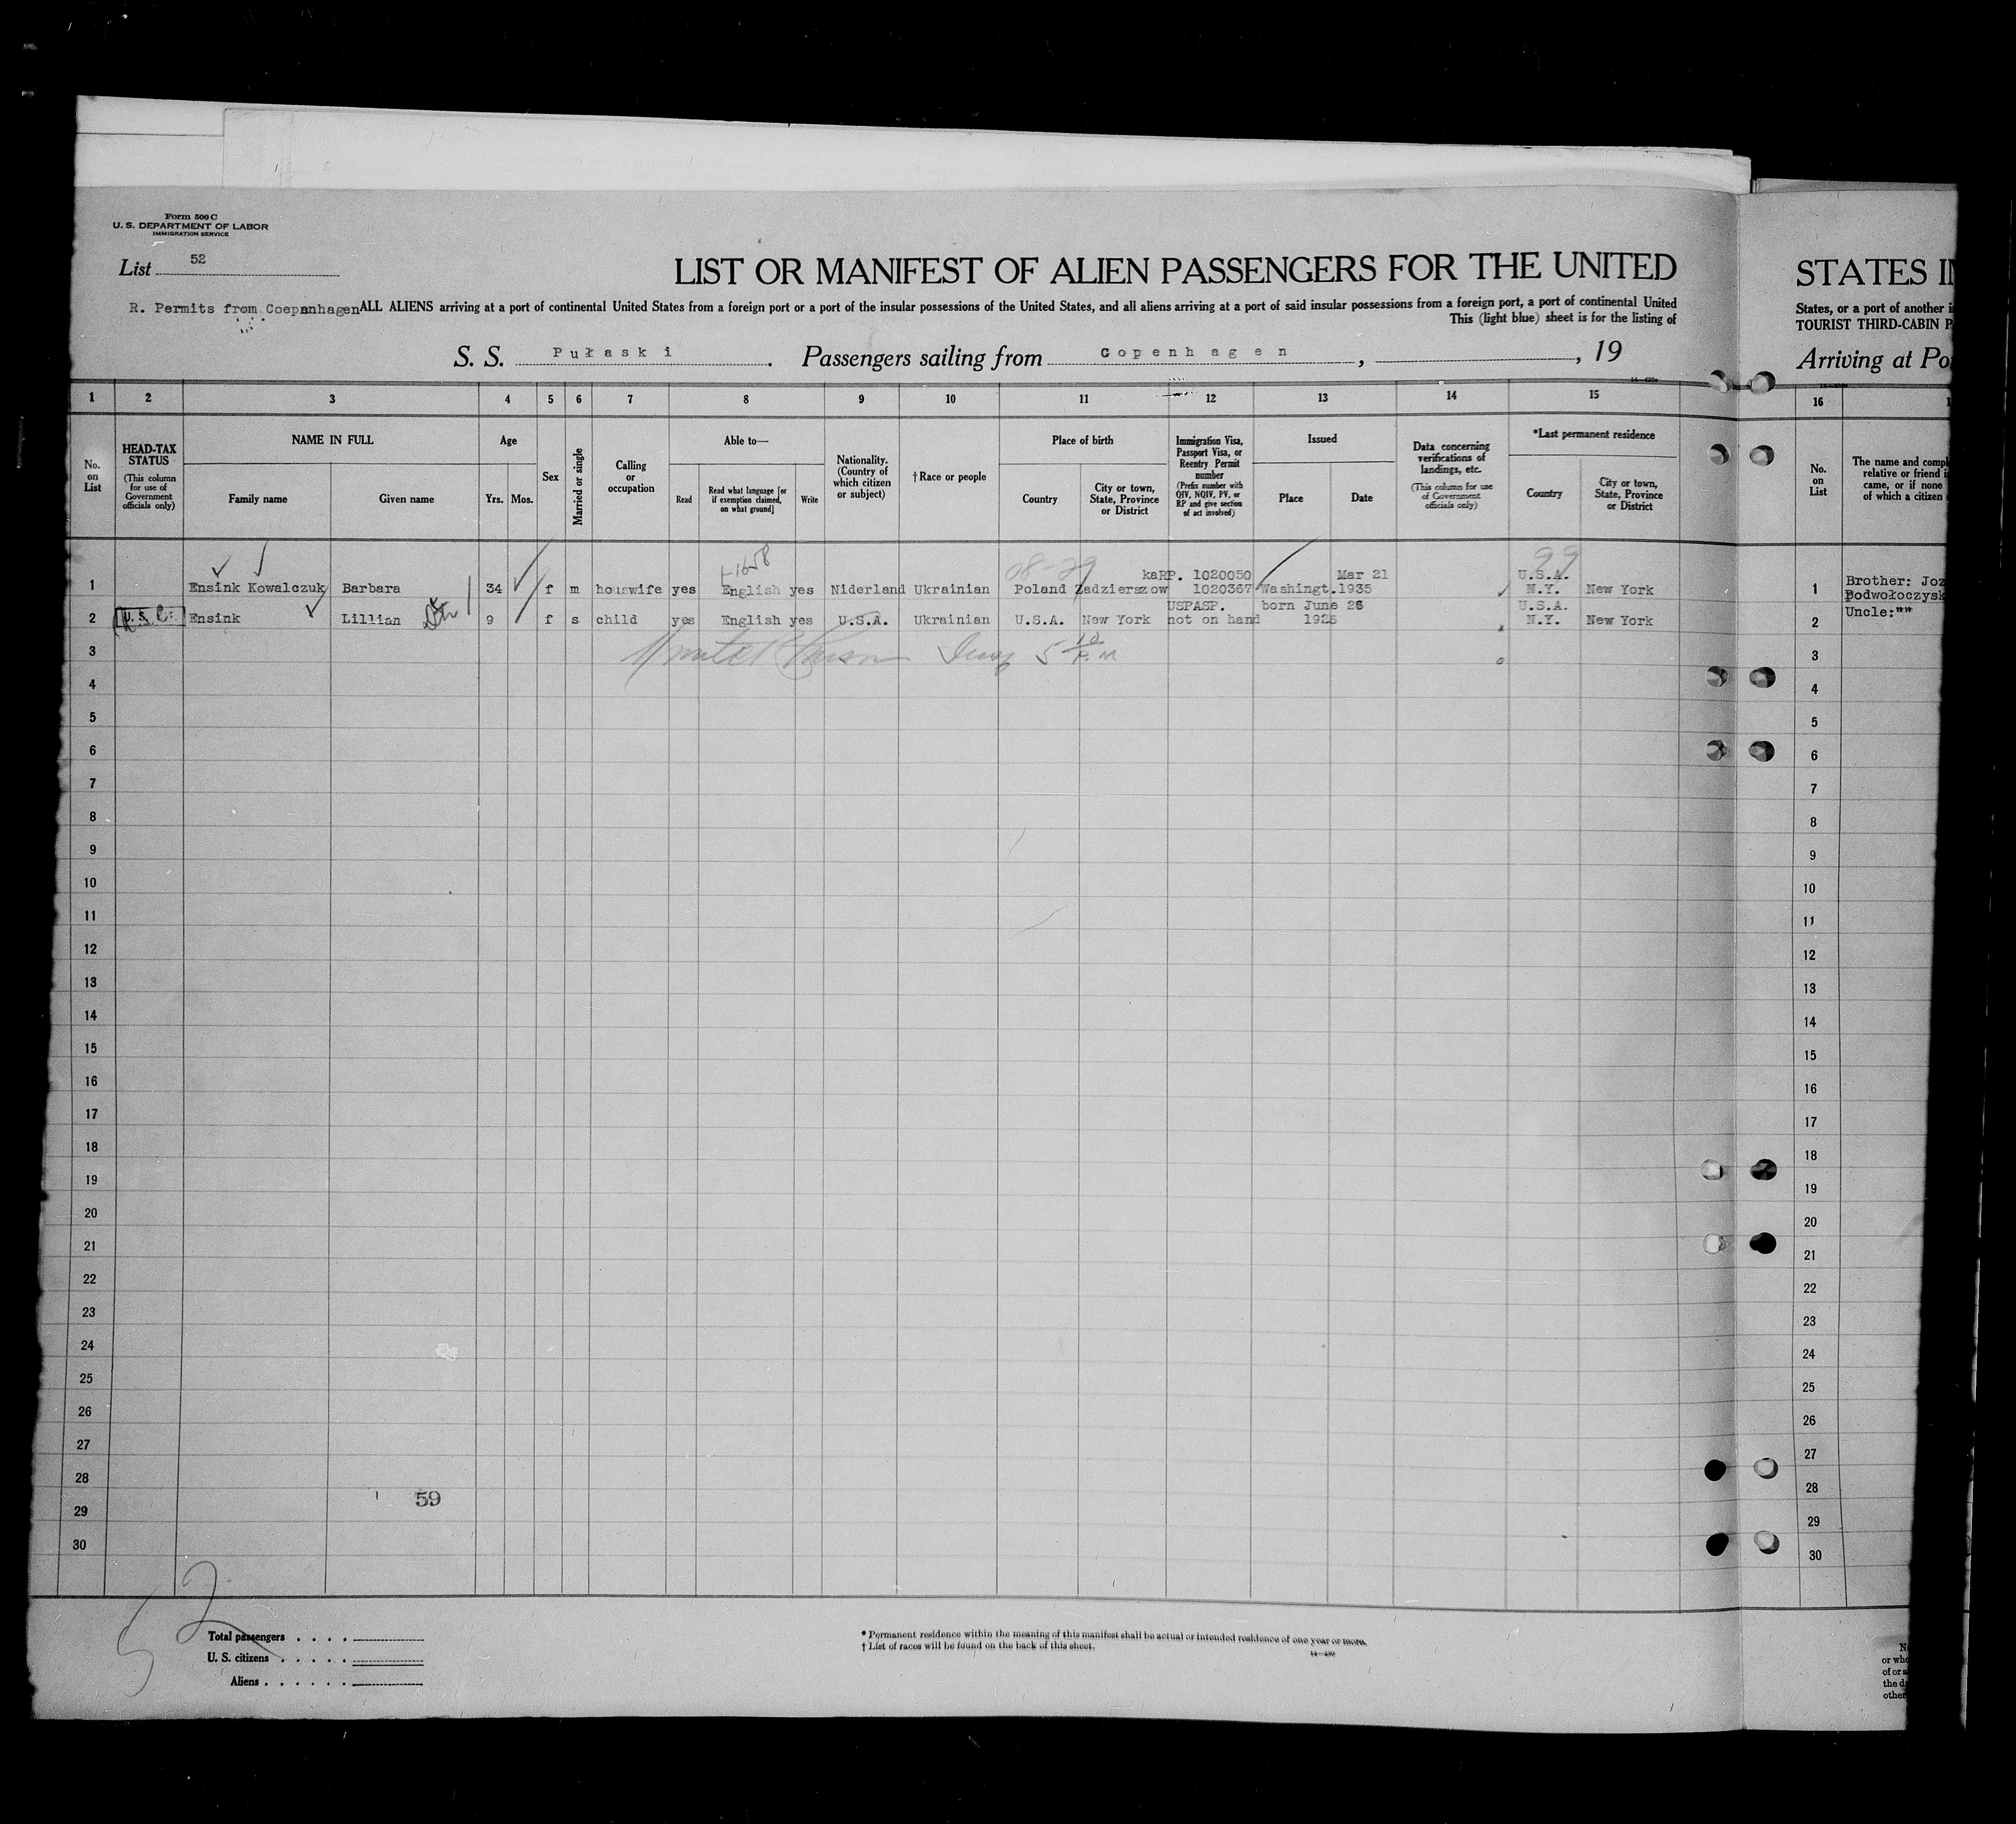 Form 500 C
U. S. DEPARTMENT OF LABOR
IMMIGRATION SERVICE
List 52
LIST OR MANIFEST OF ALIEN PASSENGERS FOR THE UNITED
STATES IN
R. Permits from Coepenhagen ALL ALIENS arriving at a port of continental United States from a foreign port or a port of the insular possessions of the United States, and all aliens arriving at a port of said insular possessions from a foreign port, a port of continental United
States, or a port of another i
This (light blue) sheet is for the listing of
TOURIST THIRD-CABIN P
S. S. Pułaski. Passengers sailing from Copenhagen, , 19
Arriving at Po
1 2 3 4 5 6 7 8 9 10 11 12 13 14 15
16
No. on List
HEAD-TAX STATUS
(This column for use of Government officials only)
NAME IN FULL
Family name
Given name
Age
Yrs. Mos.
Sex
Married or single
Calling or occupation
Able to—
Read
Read what language [or if exemption claimed, on what ground]
Write
Nationality. (Country of which citizen or subject)
†Race or people
Place of birth
Country
City or town, State, Province or District
Immigration Visa, Passport Visa, or Reentry Permit number
(Prefix number with QIV, NQIV, PV, or RP and give section of act involved)
Issued
Place
Date
Data concerning verifications of landings, etc.
(This column for use of Government officials only)
*Last permanent residence
Country
City or town, State, Province or District
No. on List
The name and compl
relative or friend i
came, or if none
of which a citizen
kaRP. 1020050 Mar 21 U.S.A.
1 Ensink Kowalczuk Barbara 34 f m houswife yes English yes Niderland Ukrainian Poland Zadzierszow 1020367 Washingt. 1935 N.Y. New York
USPASP. born June 26 U.S.A.
2 U. S. C. Ensink Lillian 9 f s child yes English yes U.S.A. Ukrainian U.S.A. New York not on hand 1925 N.Y. New York
1 Brother: Joz
Podwołoczysk
2 Uncle:""
3
4
5
6
7
8
9
10
11
12
13
14
15
16
17
18
19
20
21
22
23
24
25
26
27
28
29
30
3
4
5
6
6
7
8
9
10
11
12
13
14
15
16
17
18
19
20
21
22
23
24
25
26
27
28
29
30
59
52
Total passengers . . . .
U. S. citizens . . . . .
Aliens . . . . . .
* Permanent residence within the meaning of this manifest shall be actual or intended residence of one year or more.
† List of races will be found on the back of this sheet.
14—430
or who
of or a
the d
other